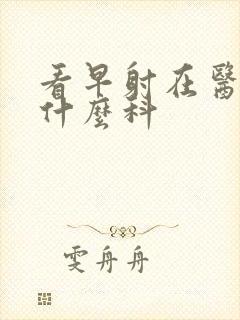 看早射在醫
什麼科
雯舟舟